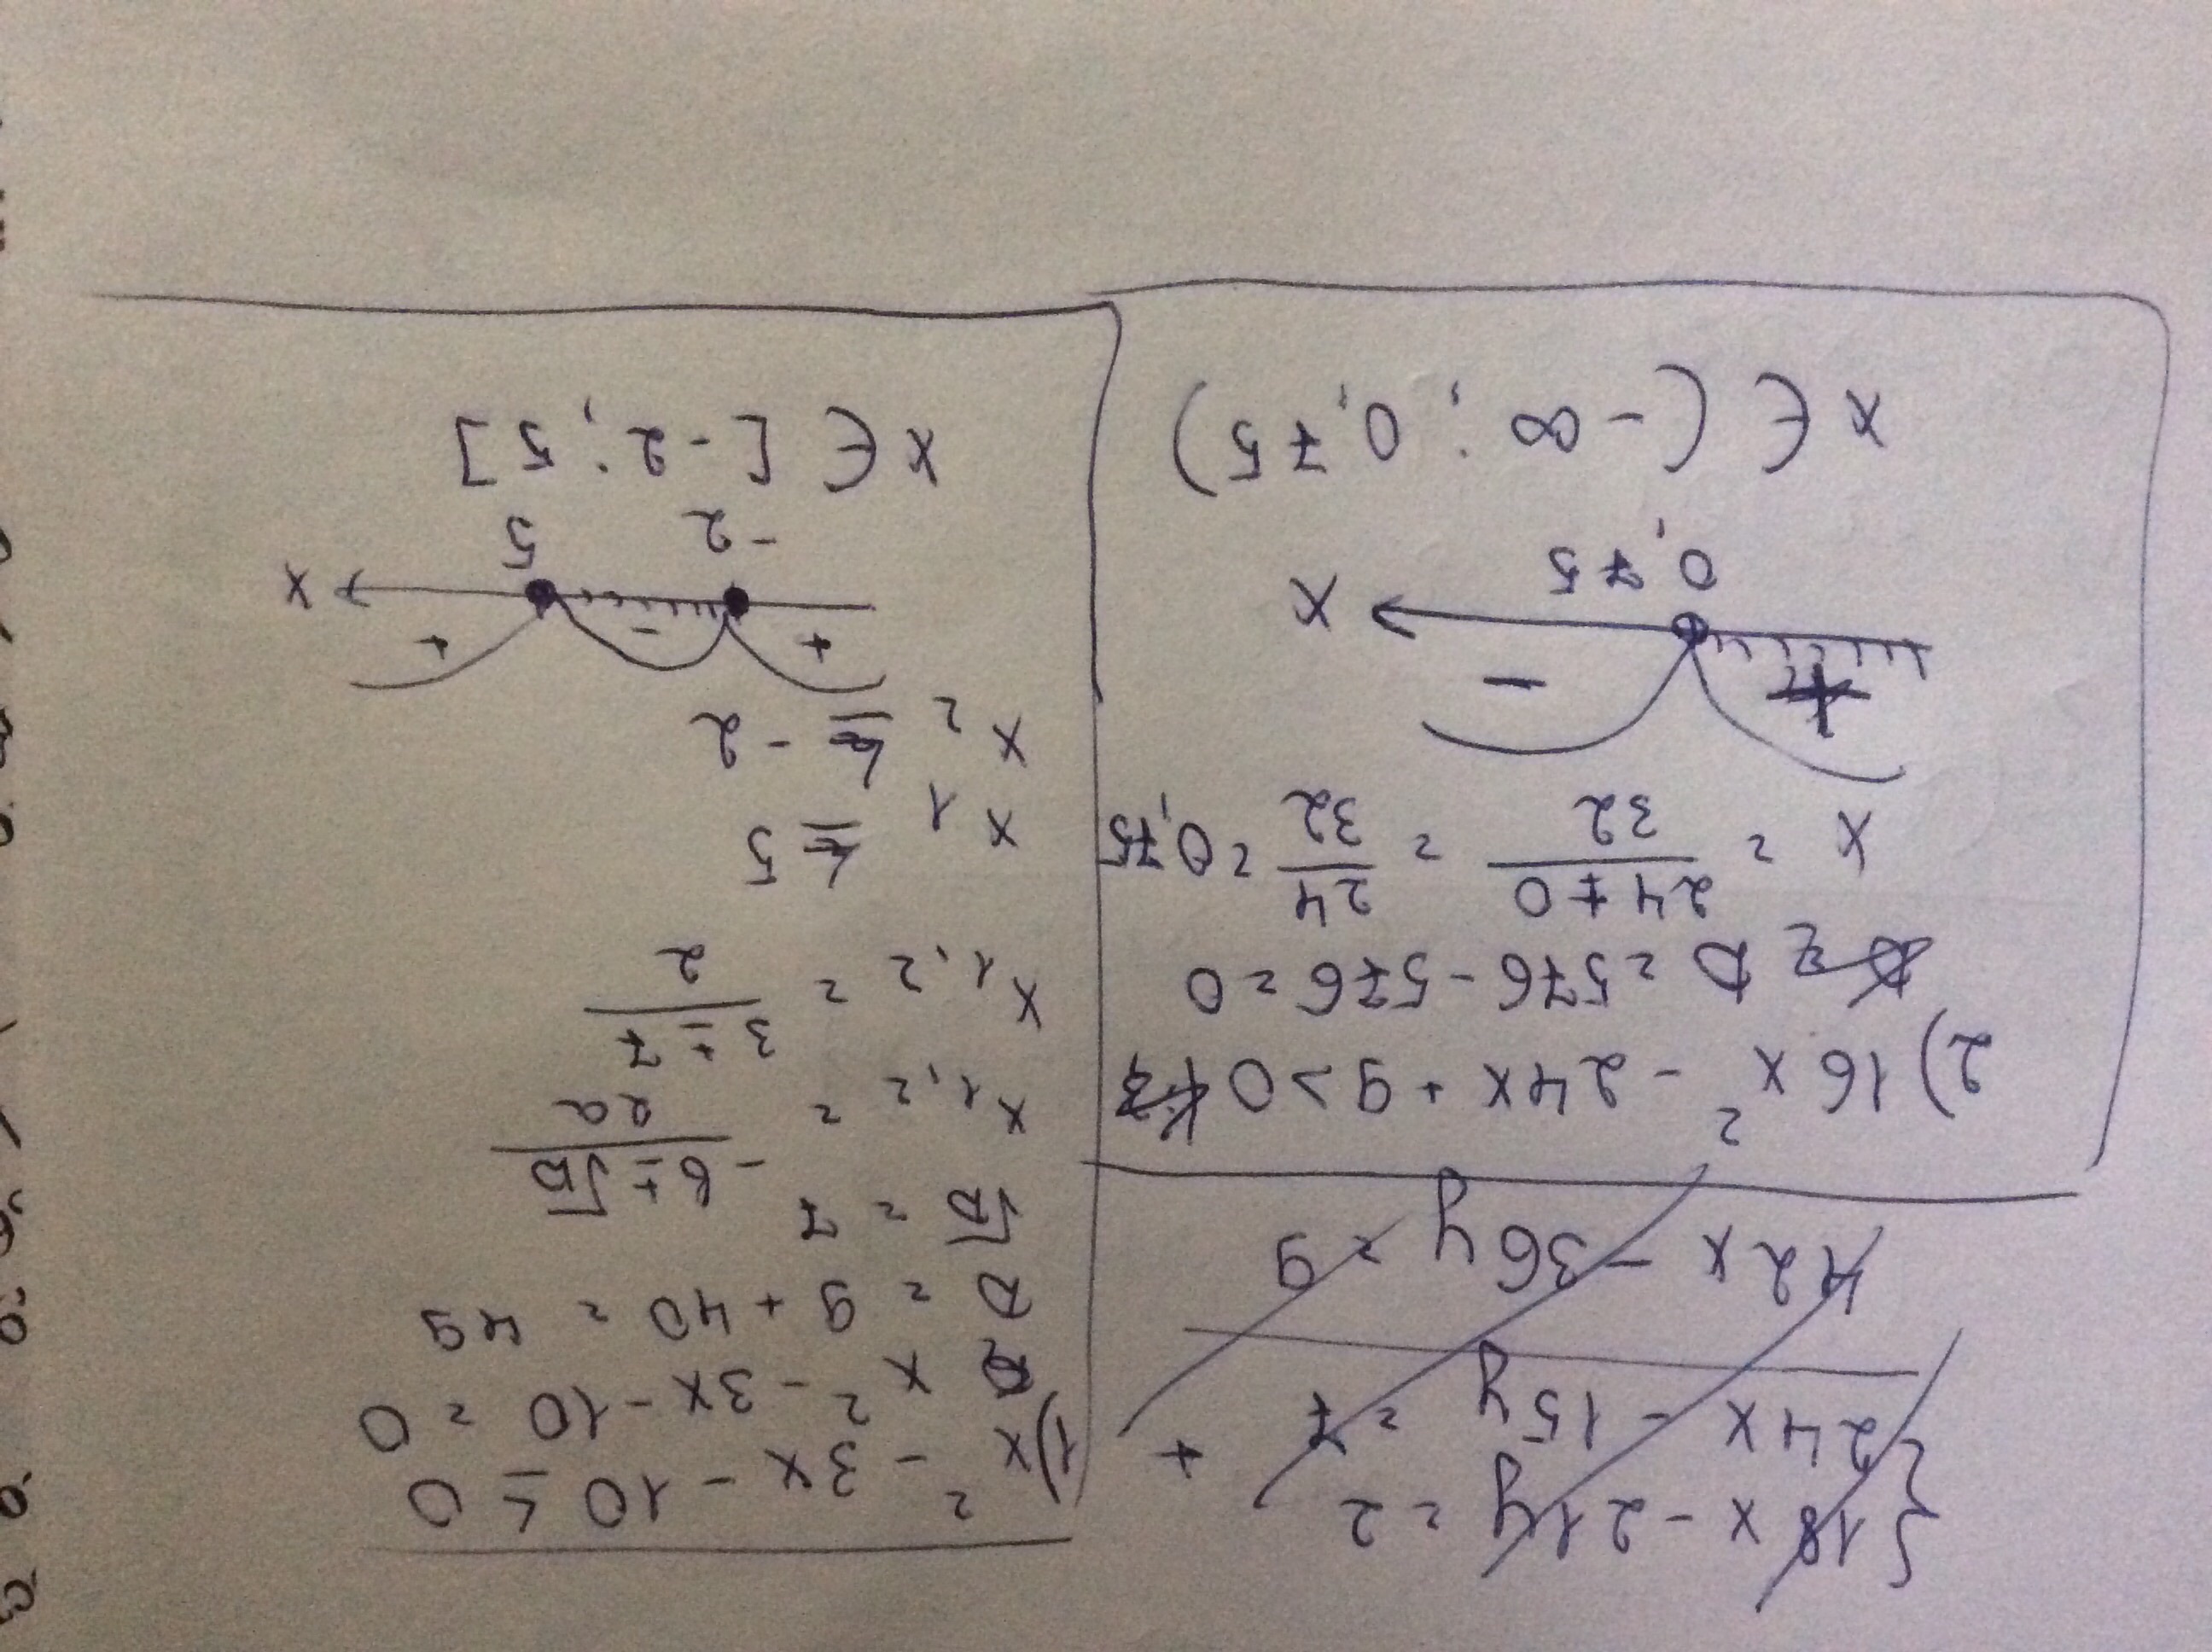 {18x - 21y = 2
24x - 15y = 7 +
42x - 36y = 9
2) 16x² - 24x + 9 > 0
D = 576 - 576 = 0
x = 24 ± 0 / 32 = 24 / 32 = 0,75
+ -
0,75 x
x ∈ (-∞; 0,75)
1) x² - 3x - 10 ≤ 0
x² - 3x - 10 = 0
D = 9 + 40 = 49
√D = 7
x1,2 = -b ± √D / 2a
x1,2 = 3 ± 7 / 2
x1 = 5
x2 = -2
+ - +
-2 5 x
x ∈ [-2; 5]